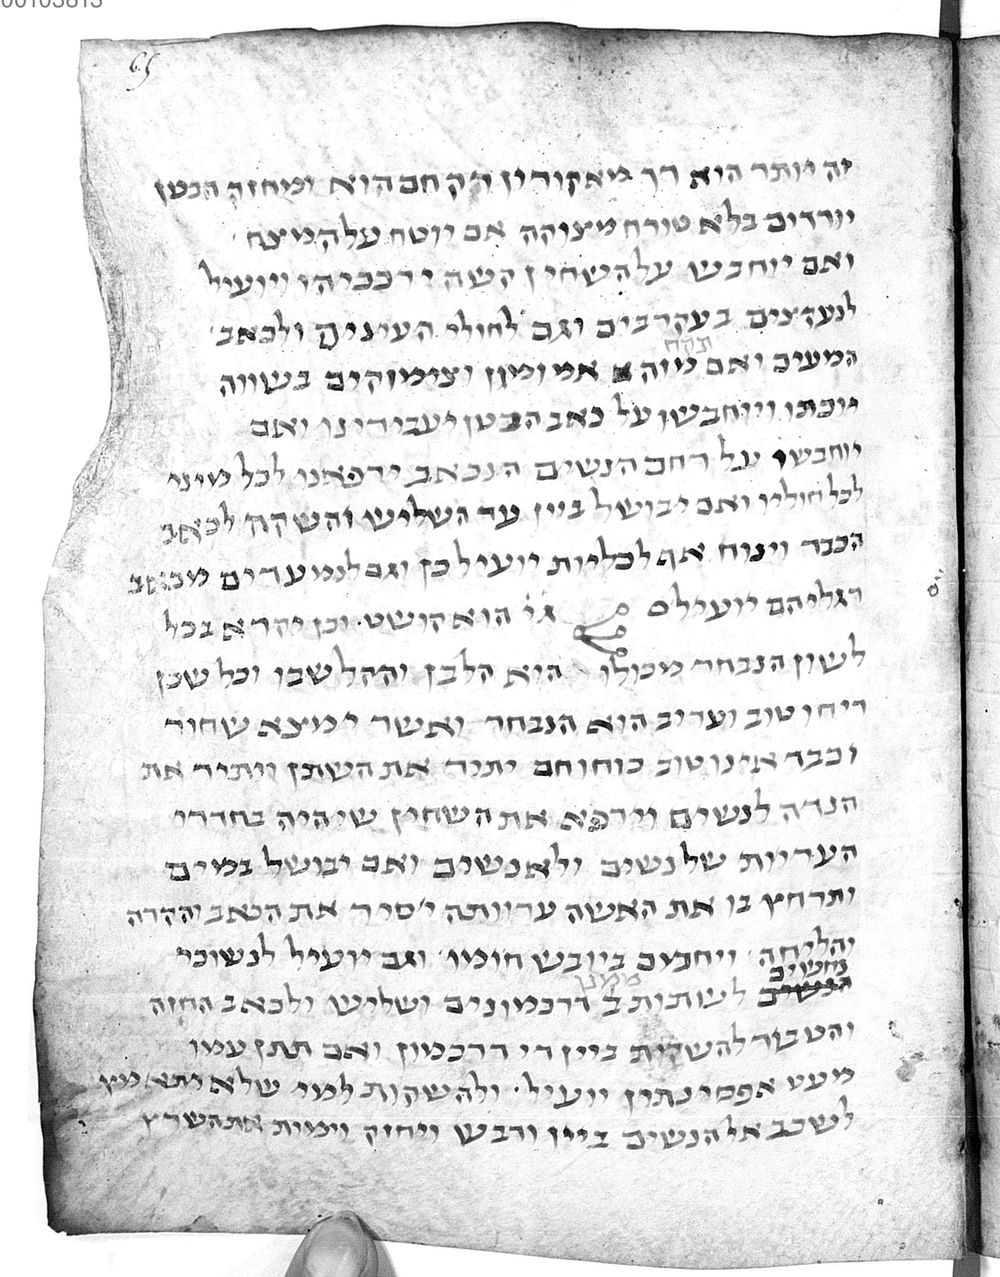 00103813
65
זה יותר הוא רך מאקורון הק חם הוא ומחזק הבטן
יורדים בלא טורח מצוקה אם יוטח על המצח
ואם יוחבש על השחין הקשה ירככיהו ויועיל
לנעקצים בעקרבים וגם לחולי העינים ולכאב
תקח
המעים ואם מזה אמומון וצימוקים בשווה
ויכתו ויוחבשו על כאב הבטן יעבירינו ואם
יוחבש על רחם הנשים הנכאב ירפאנו לכל מיני
לכל חוליו ואם יבושל ביין עד השליש והשקה לכאב
הכבד וינוח אף לכליות יועיל כן וגם לנמעדים מכאב
רגליהם יועיל ס גי הוא קושט וכן יקרא בכל
לשון הנבחר מכולו הוא הלבן והקל שבו וכל שכן
ריחו טוב וערוב הוא הנבחר ואשר ימצא שחור
וכבד אינו טוב כוחו חם יתיר את השתן ויתיר את
הנדה לנשים וירפא את השחין שיהיה בחדרי
העריות של נשים ולאנשים ואם יבושל במים
ותרחץ בו את האשה ערוותה יסיר את הכאב והקרה
והליחה ויחבים ביובש חומו וגם יועיל לנשוכי
נחשים
ממנו
לשתות ב דרכמונים ושליש ולכאב החזה
והטבור להשקות ביין די דרכמון ואם תתן עמו
מעט אפסינתין יועיל ולהשקות למי שלא יתאמץ
לשכב אל הנשים ביין ודבש ויחזק וימית את השרץ